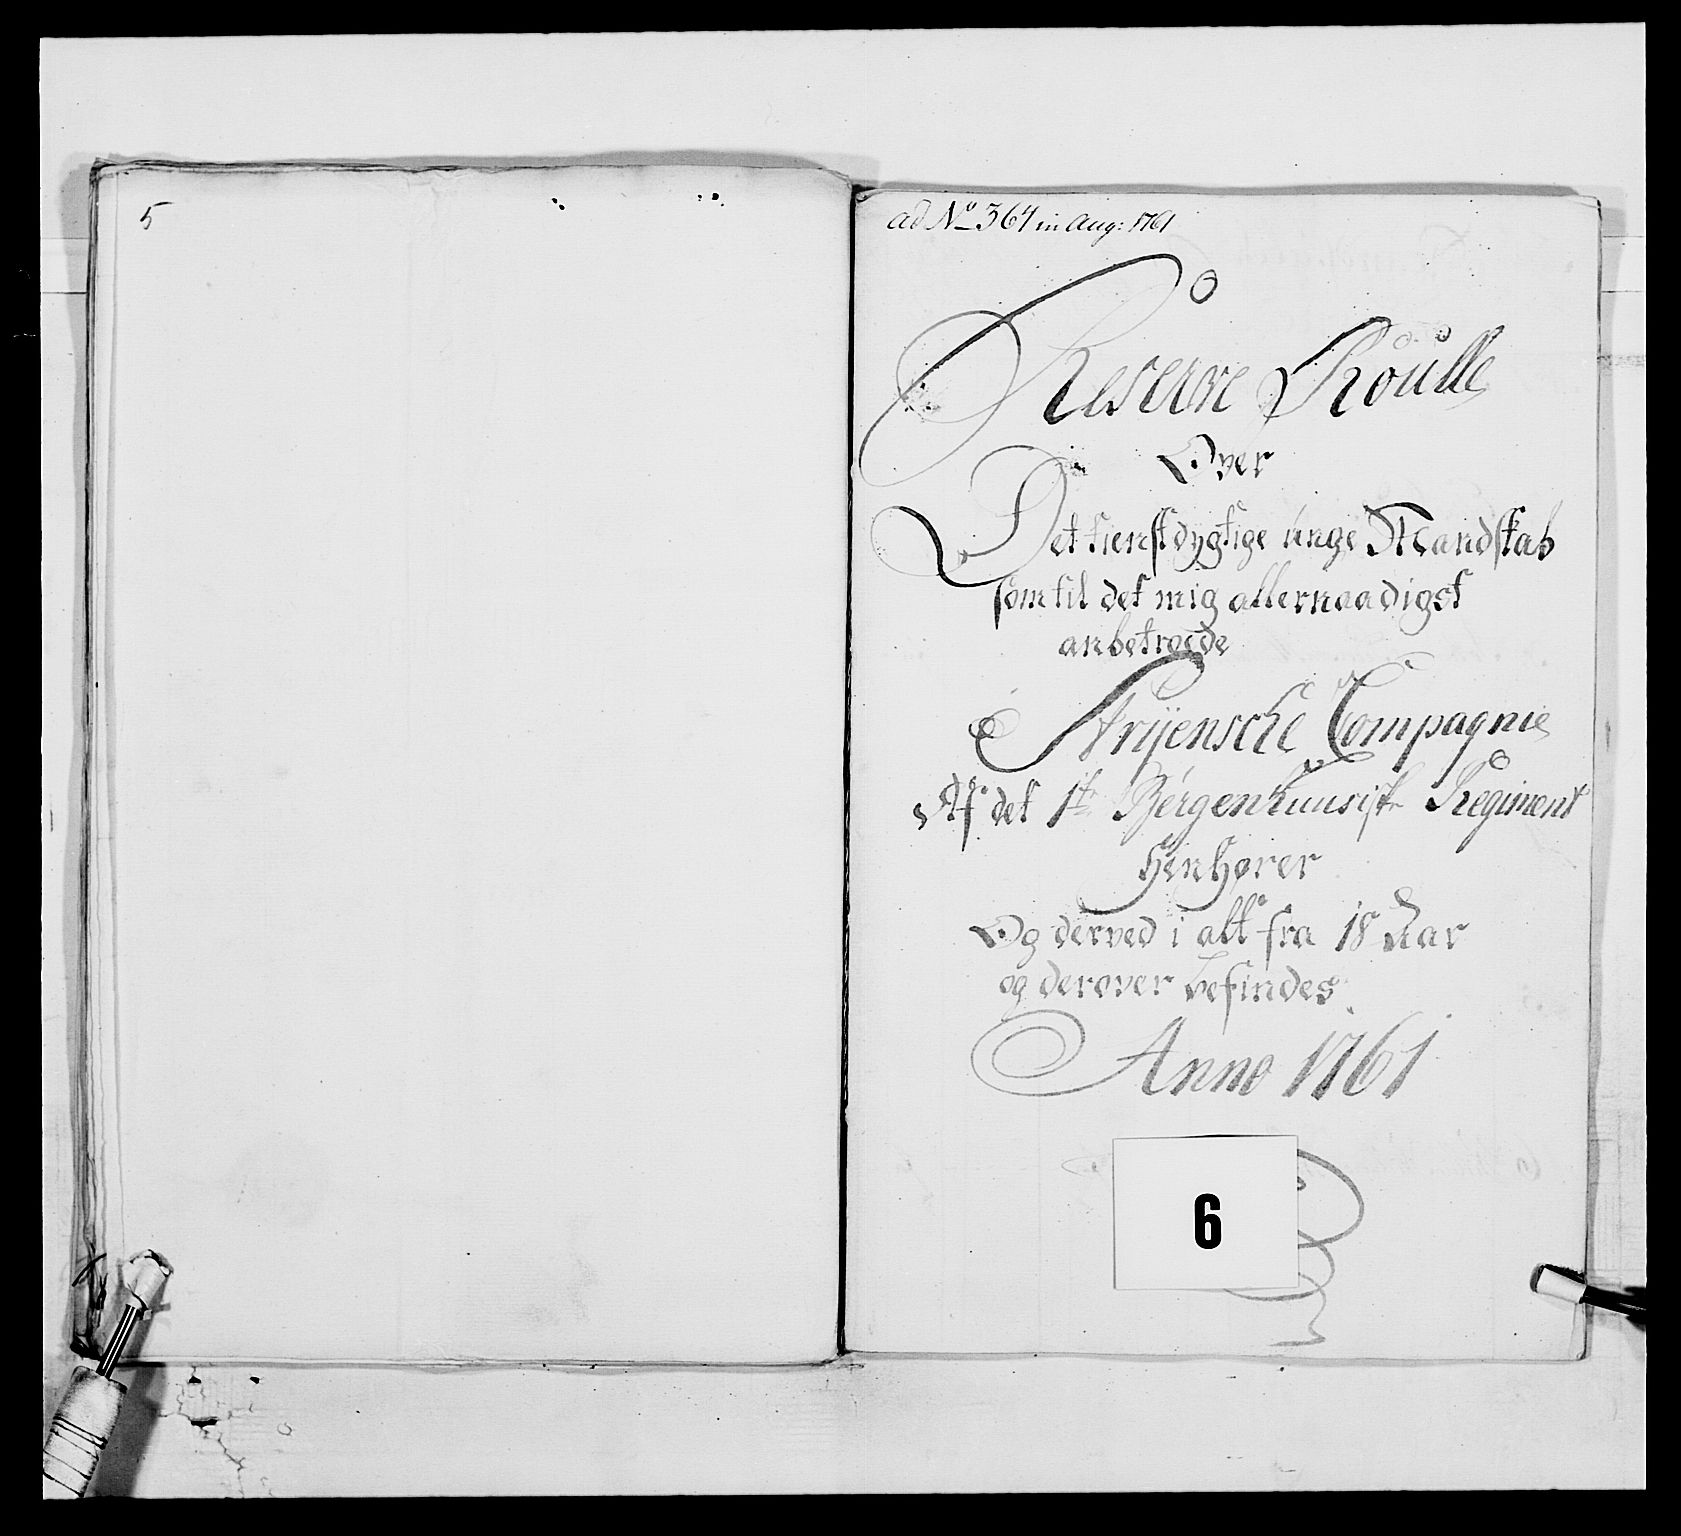 5
ad No 364 in Aug: 1761
Reserve Roulle
Over
Det tienstdygtige unge Mandskab
som til det mig allernaadigst
anbetroede
Stryensche Compagnie
Af det 1te Bergenhuusiske Regiment
henhører
Og derved i alt fra 18 Aar
og derover befindes
Anno 1761
6